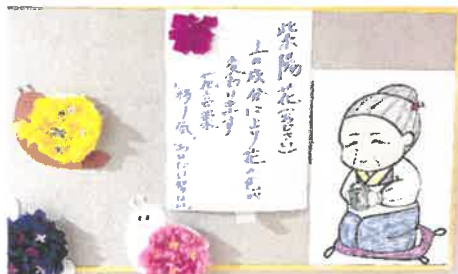 紫陽花(あじさい)
土の成分により花の色が
変わります
花言葉
移り気